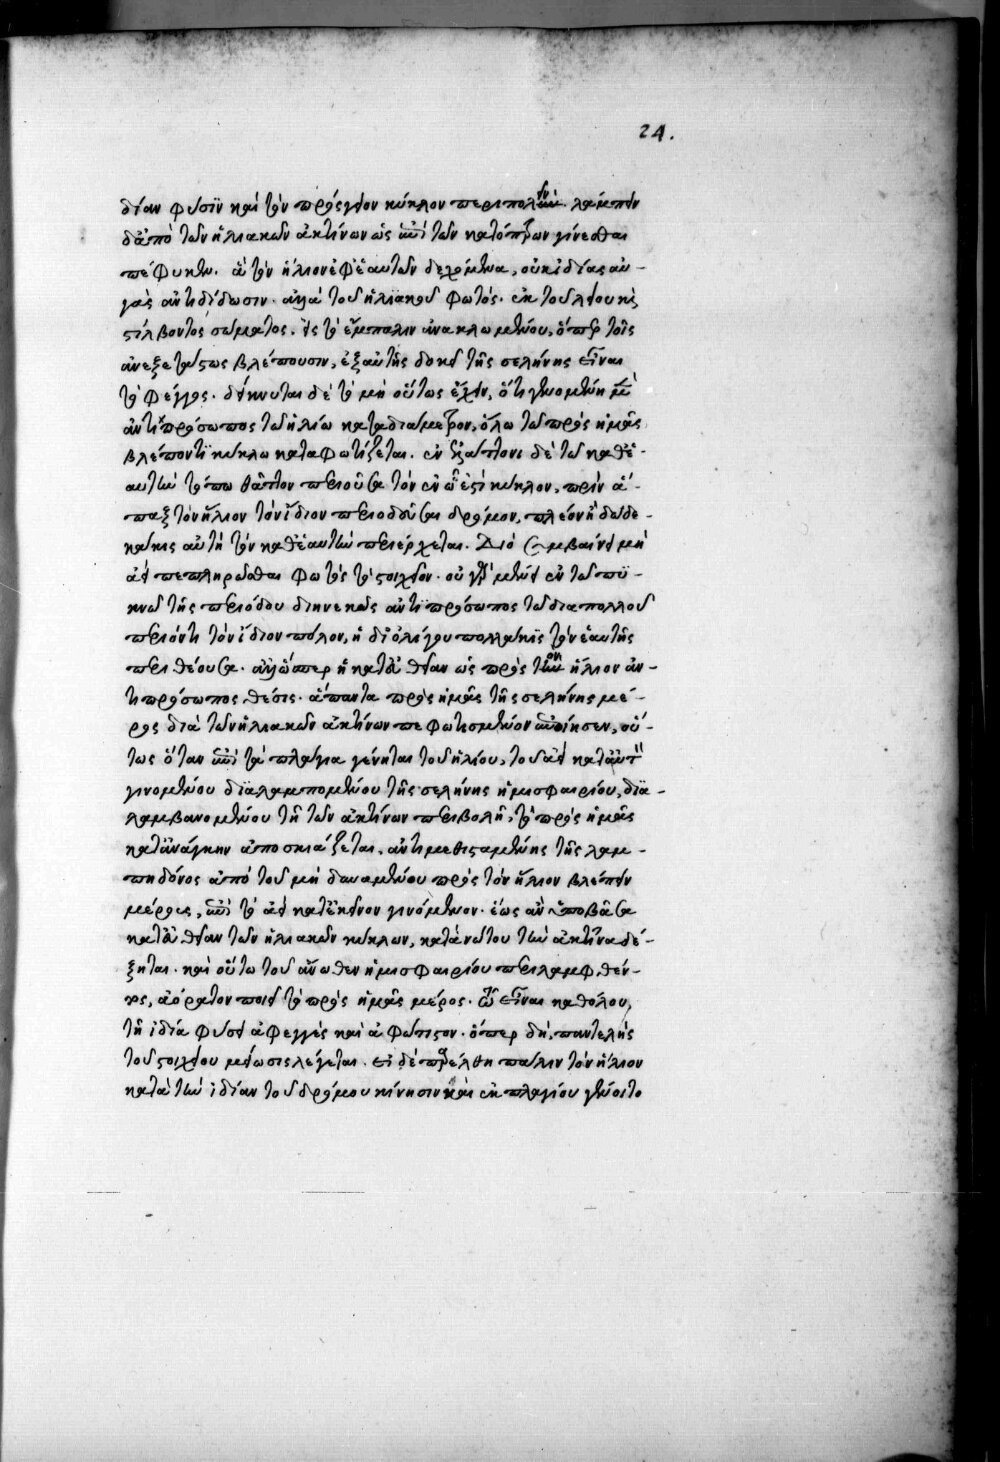 24.
δίαν φύσιν καὶ τὸν πρόσγειον κύκλον περιπολεῖν. λάμπειν
δ' ἀπὸ τῶν ἡλιακῶν ἀκτίνων ὡς ἐπὶ τῶν κατόπτρων γίνεσθαι
πέφυκεν. ἃ τὴν ἡλίου ἐφ' ἑαυτῶν δεχόμενα, οὐκ ἰδίας αὐ-
γὰς ἀντιδίδωσιν. ἀλλὰ τοῦ ἡλιακοῦ φωτός. ἐκ τοῦ λείου κỳ
στίλβοντος σώματος. εἰς τὸ ἔμπαλιν ἀνακλωμένου, ὅπερ τοῖς
ἀνεξετάστως βλέπουσιν, ἐξ αὐτῆς δοκεῖ τῆς σελήνης εἶναι
τὸ φέγγος. δείκνυται δὲ τὸ μὴ οὕτως ἔχειν, ὅτι γενομένη μὲν
ἀντιπρόσωπος τῷ ἡλίῳ κατὰ διάμετρον, ὅλῳ τῷ πρὸς ἡμᾶς
βλέποντι κύκλῳ καταφωτίζεται. ἐν ἐλάττονι δὲ τῷ καθ' ἑ-
αυτὴν τόπῳ θᾶττον περιοῦσα τὸν ἐν ᾧ ἐστὶ κύκλον, πρὶν ἅ-
παξ τὸν ἥλιον τὸν ἴδιον περιοδεῦσαι δρόμον, πλέον ἢ δωδε-
κάκις αὐτὴ τὸν καθ' ἑαυτὴν περιέρχεται. Διὸ συμβαίνει μὴ
ἀεὶ πεπληρῶσθαι φωτὸς τὸ στοιχεῖον. οὐ γὰρ μένει ἐν τῷ πυ-
κνῷ τῆς περιόδου διηνεκῶς ἀντιπρόσωπος τῷ διὰ πολλοῦ
περιόντι τὸν ἴδιον πόλον, ἡ δι' ὀλίγου πολλάκις τὸν ἑαυτῆς
περιθέουσα. ἀλλ' ὥσπερ ἡ κατ' εὐθεῖαν ὡς πρὸς τὸν ἥλιον ἀν-
τιπρόσωπος θέσις. ἅπαντα πρὸς ἡμᾶς τῆς σελήνης μέ-
ρος διὰ τῶν ἡλιακῶν ἀκτίνων πεφωτισμένον ἐποίησεν, οὕ-
τως ὅταν ἐπὶ τὰ πλάγια γένηται τοῦ ἡλίου, τοῦ ἀεὶ κατ' αὐτὸν
γινομένου διαλαμπομένου τῆς σελήνης ἡμισφαιρίου, δια-
λαμβανομένου τῇ τῶν ἀκτίνων περιβολῇ, τὸ πρὸς ἡμᾶς
κατ' ἀνάγκην ἀποσκιάζεται. ἀντιμεθισταμένης τῆς λαμ-
πηδόνος ἀπὸ τοῦ μὴ δυναμένου πρὸς τὸν ἥλιον βλέπειν
μέρους, ἐπὶ τὸ ἀεὶ κατ' ἐκεῖνον γινόμενον. ἕως ἂν ὑποβᾶσα
κατ' εὐθεῖαν τῶν ἡλιακῶν κύκλων, κατὰ νώτου τὴν ἀκτῖνα δέ-
ξηται. καὶ οὕτω τοῦ ἄνωθεν ἡμισφαιρίου περιλαμφθέν-
τος, ἀόρατον ποιεῖ τὸ πρὸς ἡμᾶς μέρος. τῷ εἶναι καθόλου
τῇ ἰδίᾳ φύσει ἀφεγγὲς καὶ ἀφώτιστον. ὅπερ δὴ, παντελὴς
τοῦ στοιχείου μείωσις λέγεται. εἰ δὲ παρέλθῃ πάλιν τὸν ἥλιον
κατὰ τὴν ἰδίαν τοῦ δρόμου κίνησιν καὶ ἐκ πλαγίου γένοιτο